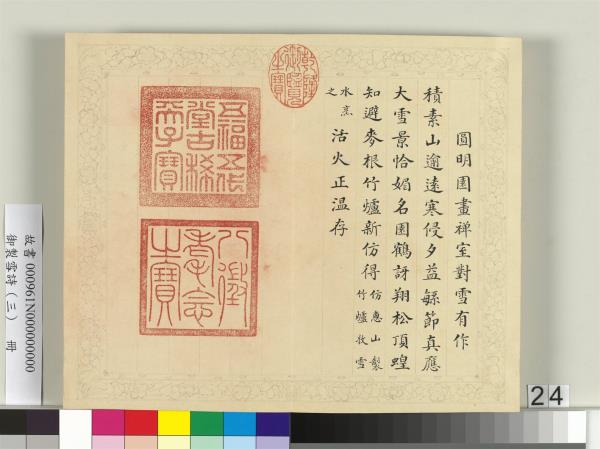 圓明園畫禪室對雪有作
積素山逾遠寒侵夕益緜節真應
大雪景恰媚名園鶴訝翔松頂蝗
知避麥根竹爐新仿得仿惠山製竹爐收雪
水烹之活火正温存
乾隆御覽之寶
五福五代堂古稀天子寶
八徵耄念之寶
故書 000961N000000000
御製雪詩（三） 冊
24